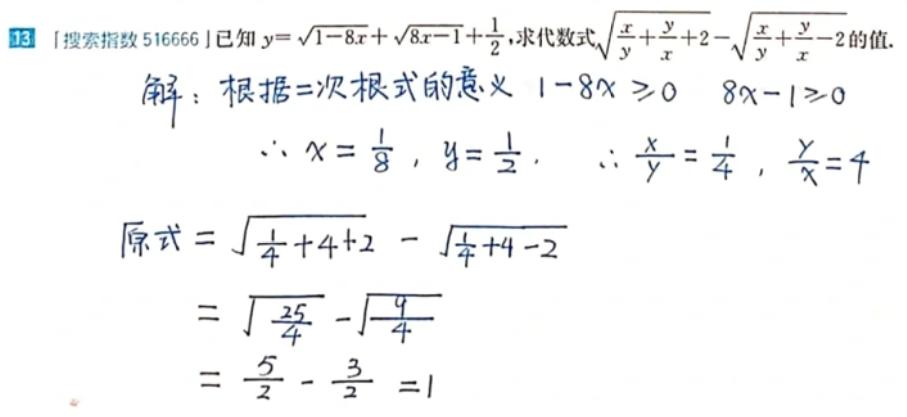 13 「搜索指数 516666」已知 y=√(1-8x)+√(8x-1)+1/2,求代数式√(x/y+y/x+2)-√(x/y+y/x-2)的值.
解：根据二次根式的意义 1-8x≥0 8x-1≥0
∴ x=1/8, y=1/2. ∴ x/y=1/4, y/x=4
原式=√(1/4+4+2) - √(1/4+4-2)
=√(25/4)-√(9/4)
=5/2-3/2=1